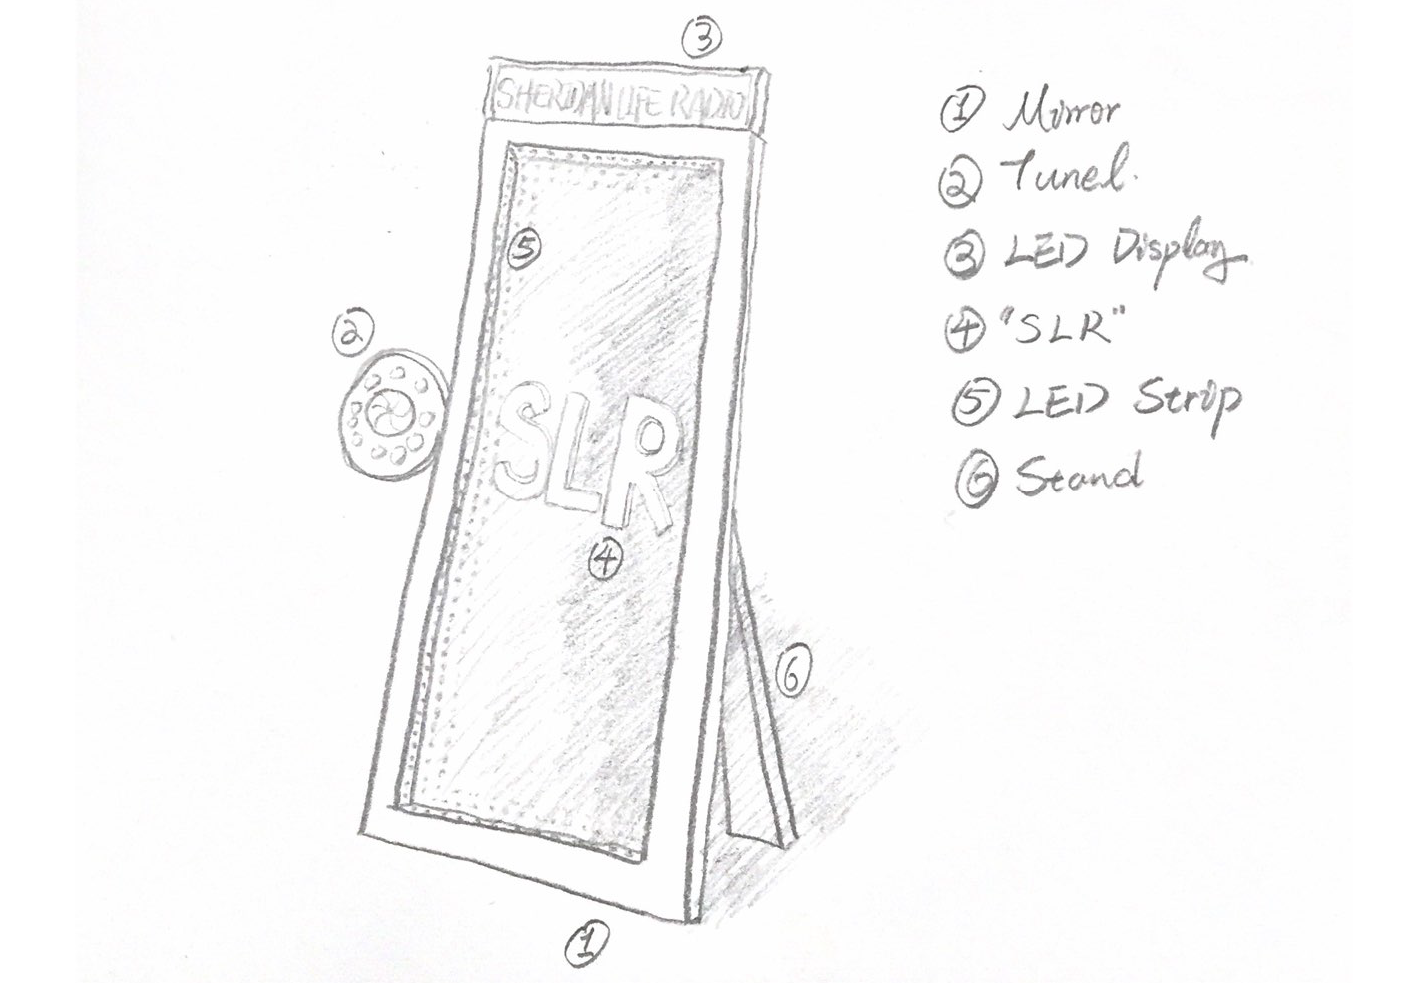 ③
SHERIDAN LIFE RADIO
⑤
②
SLR
④
⑥
①
① Mirror
② Tunel.
③ LED Display
④ "SLR"
⑤ LED Strip
⑥ Stand